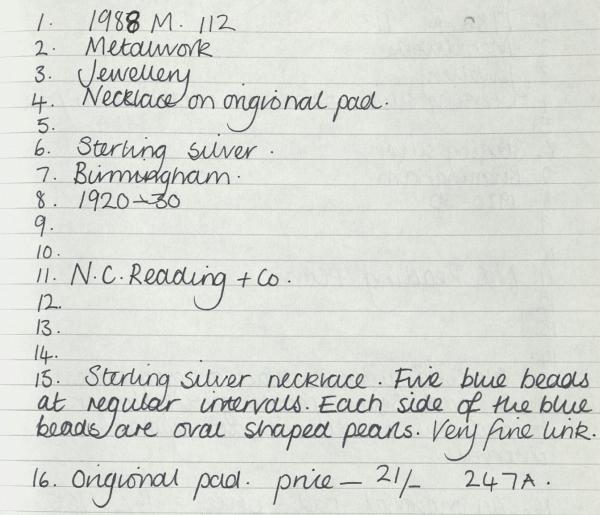 1. 1988 M. 112
2. Metalwork
3. Jewellery
4. Necklace on origional pad.
5.
6. Sterling silver.
7. Birmingham.
8. 1920-30
9.
10.
11. N.C. Reading + Co.
12.
13.
14.
15. Sterling silver necklace. Five blue beads
at regular intervals. Each side of the blue
beads are oval shaped pearls. Very fine link.
16. Origional pad. price - 21/- 247A.